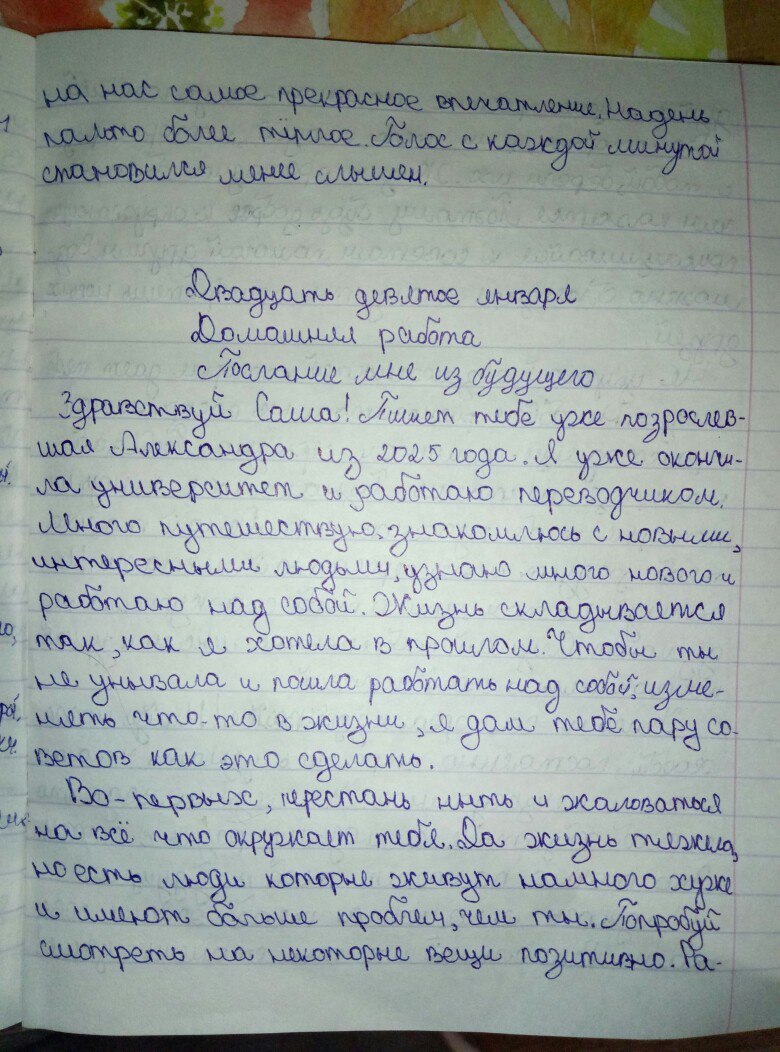 на нас самое прекрасное впечатление. Надень
пальто более тёплое. Голос с каждой минутой
становился менее слышен.
Двадцать девятое января
Домашняя работа
Послание мне из будущего
Здравствуй Саша! Пишет тебе уже позрослев-
шая Александра из 2025 года. Я уже окончи-
ла университет и работаю переводчиком.
Много путешествую, знакомлюсь с новыми,
интересными людьми, узнаю много нового и
работаю над собой. Жизнь складывается
так, как я хотела в прошлом. Чтобы ты
не унывала и пошла работать над собой, изме-
нять что-то в жизни, я дам тебе пару со-
ветов как это сделать.
Во-первых, перестань ныть и жаловаться
на всё что окружает тебя. Да жизнь тяжела,
но есть люди которые живут намного хуже
и имеют больше проблем, чем ты. Попробуй
смотреть на некоторые вещи позитивно. Ра-